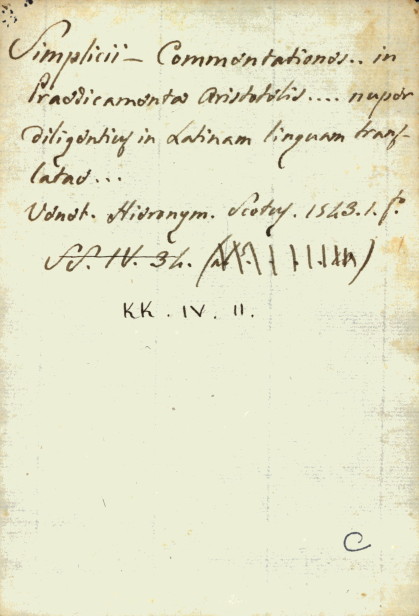 Simplicii - Commentationes.. in
Praedicamenta Aristotelis.... nuper
diligentius in Latinam linguam trans-
latae...
Venet. Hieronym. Scotus. 1543. 1. fo.
SS. IV. 34.
KK. IV. II.
C